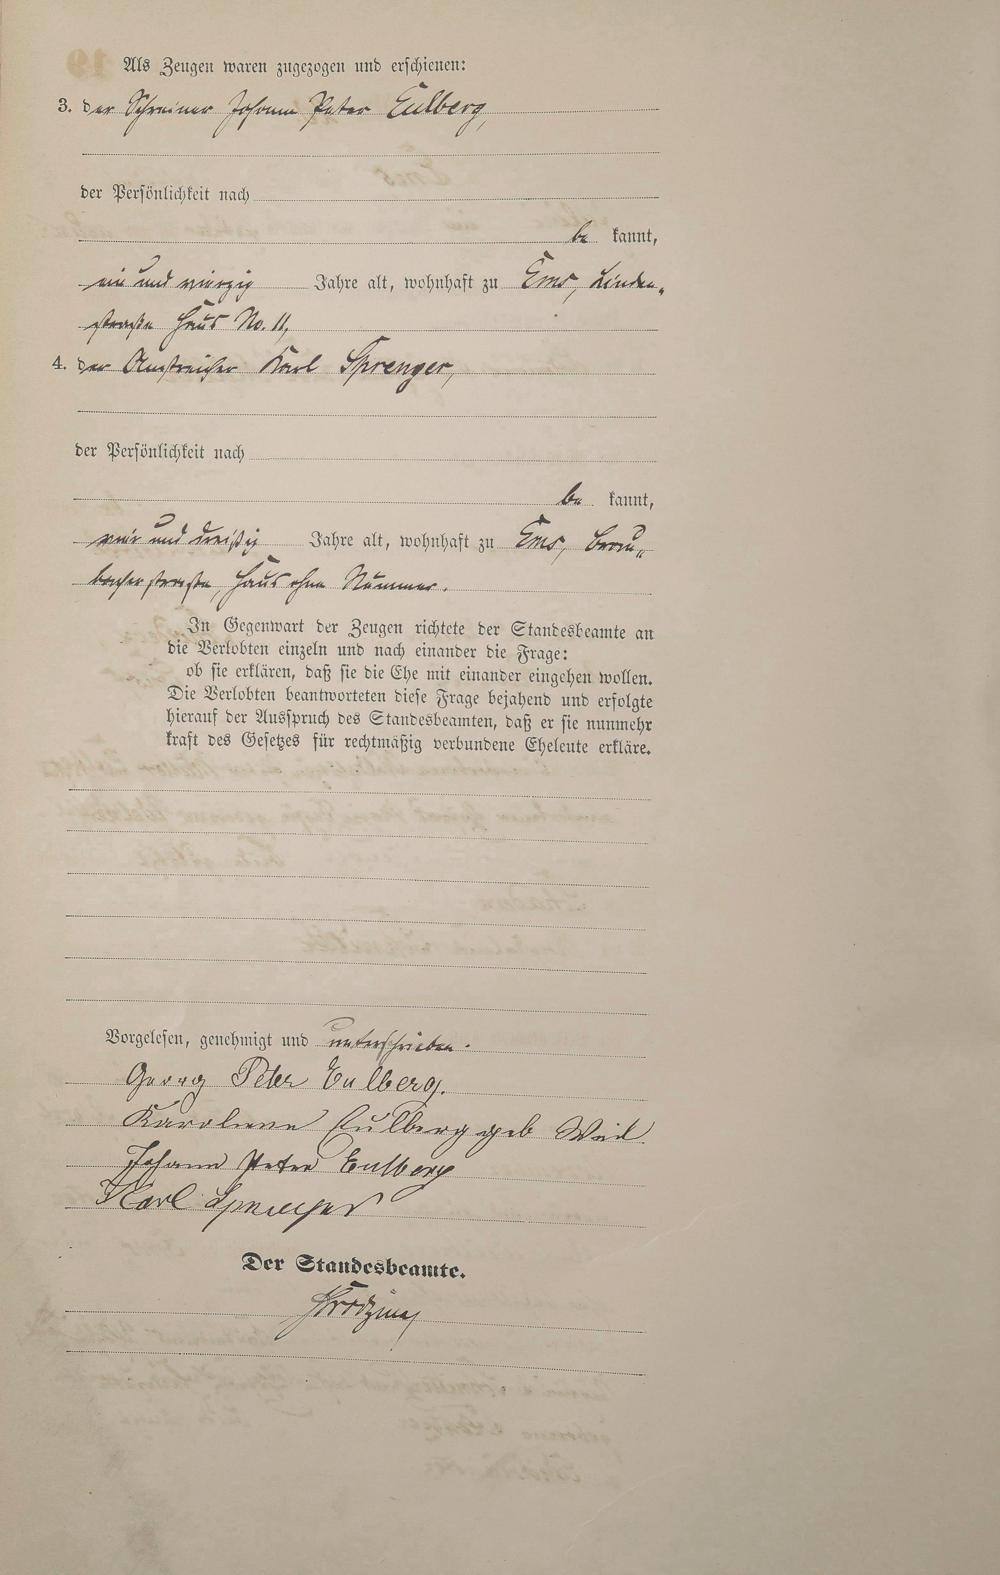 Als Zeugen waren zugezogen und erschienen:
3. der Schreiner Johann Peter Eulberg,
der Persönlichkeit nach
be kannt,
ein und vierzig Jahre alt, wohnhaft zu Ems, Linden„
straße Haus No. 11,
4. der Anstreicher Karl Sprenger,
der Persönlichkeit nach
be kannt,
vier und dreißig Jahre alt, wohnhaft zu Ems, Brau„
bacherstraße, Haus ohne Nummer.
In Gegenwart der Zeugen richtete der Standesbeamte an
die Verlobten einzeln und nach einander die Frage:
ob sie erklären, daß sie die Ehe mit einander eingehen wollen.
Die Verlobten beantworteten diese Frage bejahend und erfolgte
hierauf der Ausspruch des Standesbeamten, daß er sie nunmehr
kraft des Gesetzes für rechtmäßig verbundene Eheleute erkläre.
Vorgelesen, genehmigt und unterschrieben.
Georg Peter Eulberg.
Karoline Eulberg geb Weil.
Johann Peter Eulberg
Karl Sprenger
Der Standesbeamte.